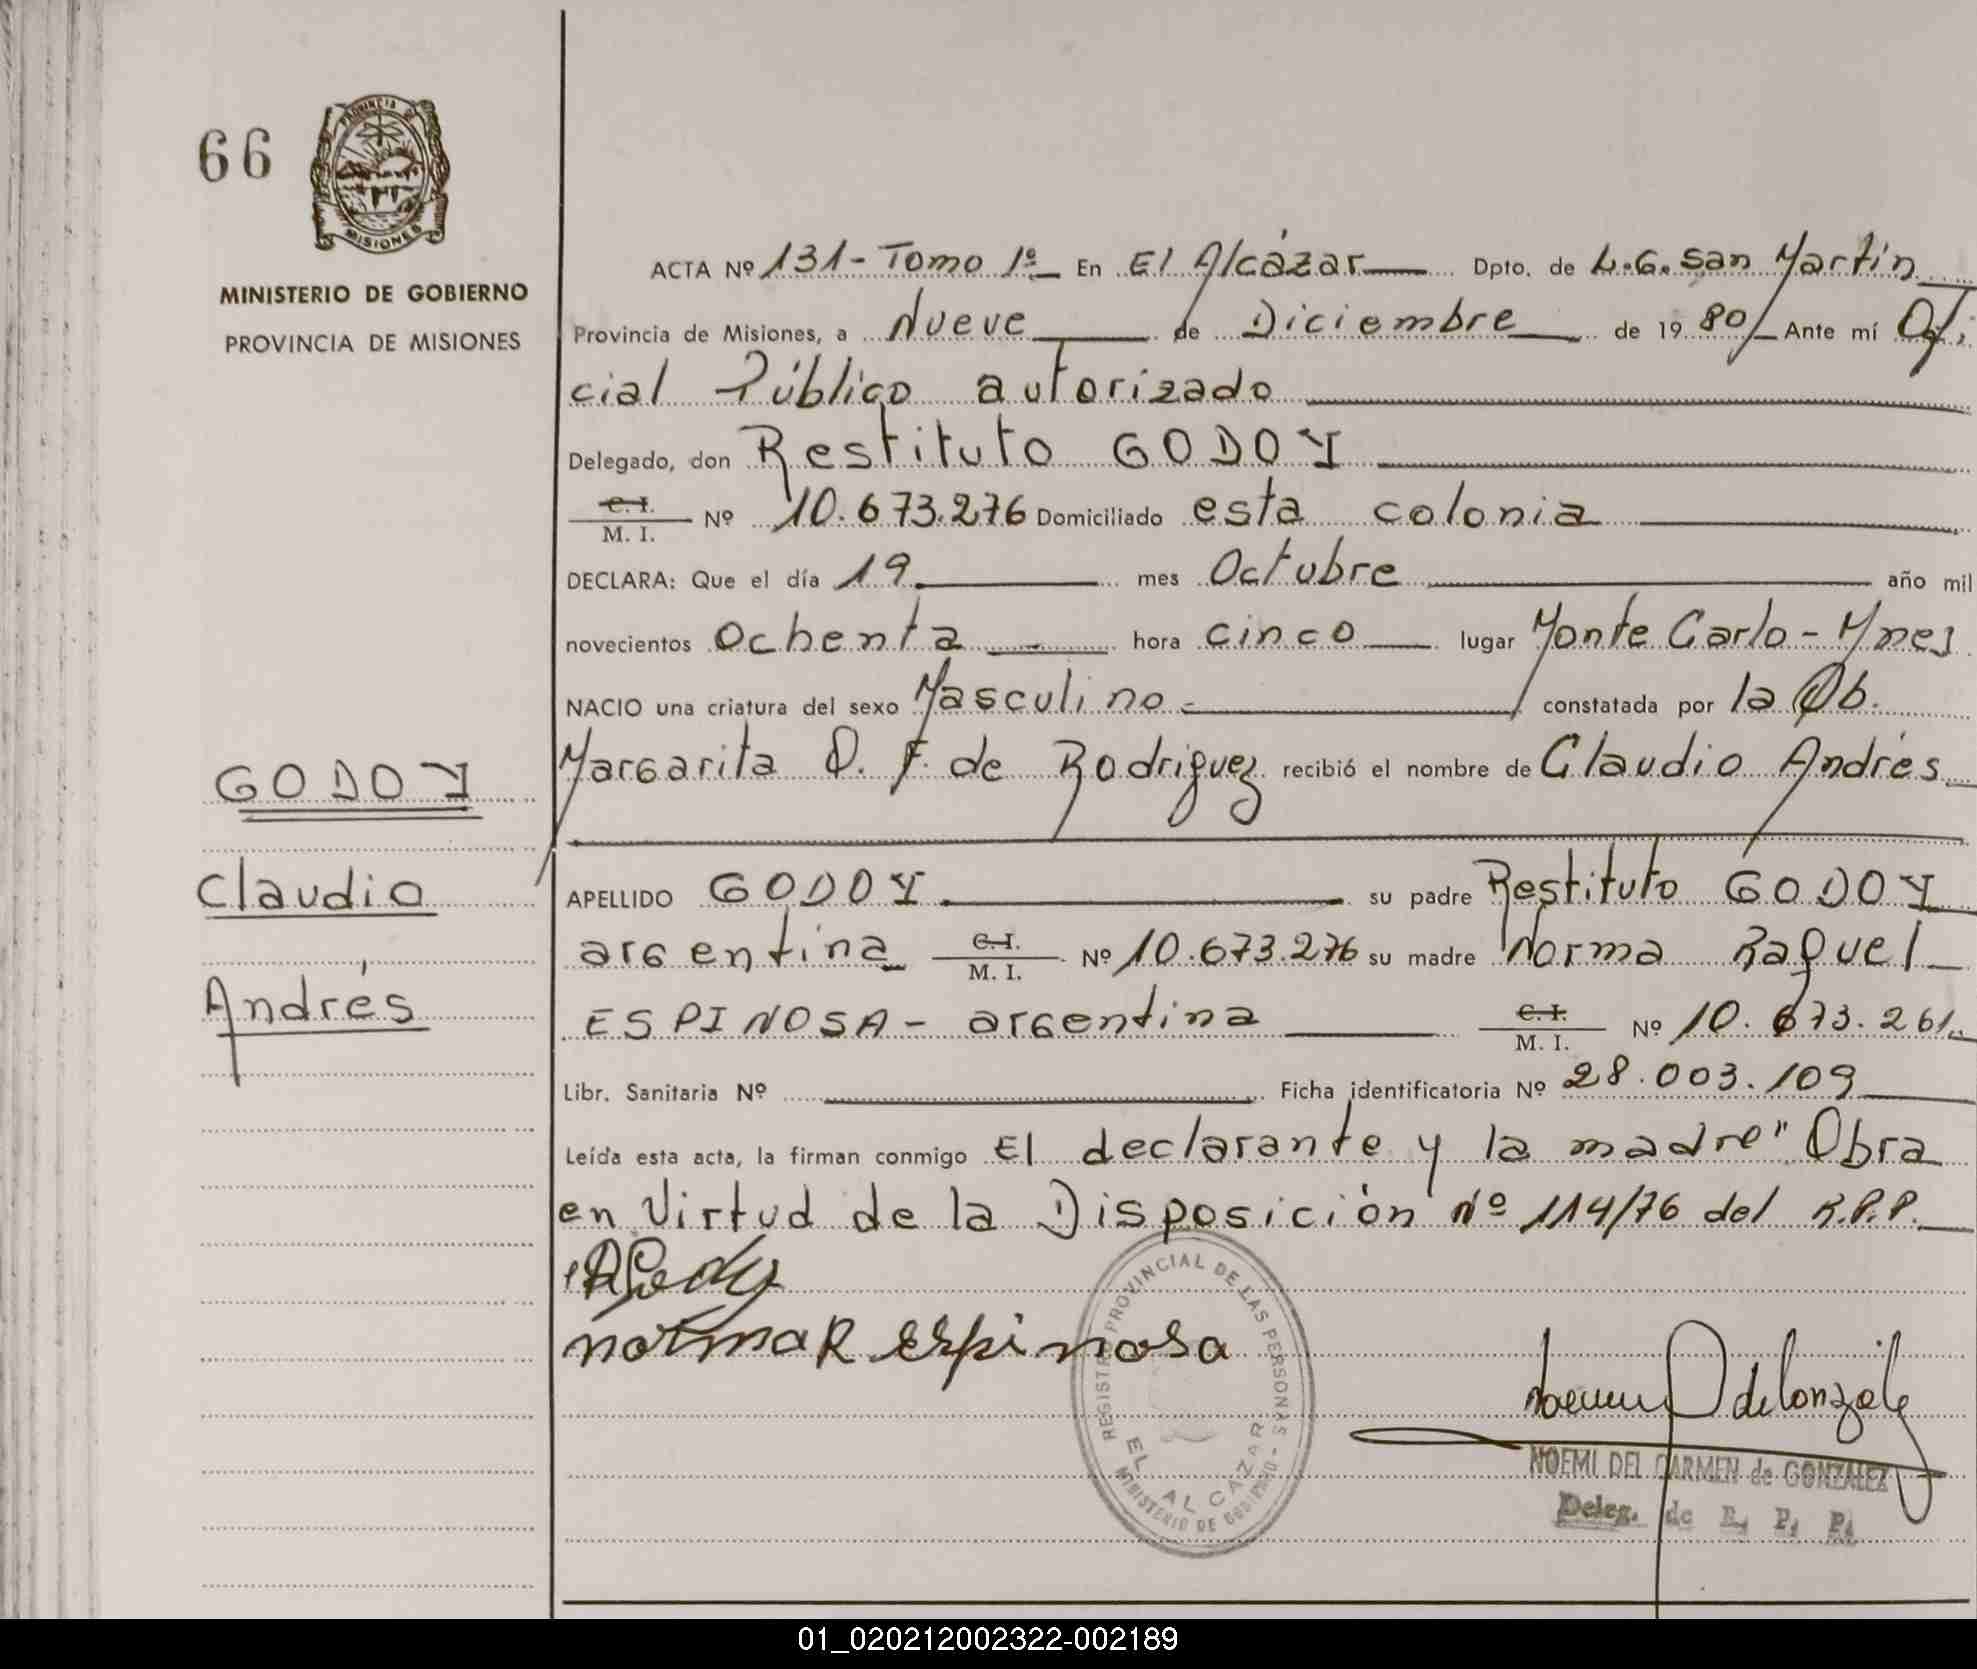 66
PROVINCIA DE
MISIONES
MINISTERIO DE GOBIERNO
PROVINCIA DE MISIONES
ACTA Nº 131- Tomo 1º En El Alcázar Dpto. de L.G. San Martín
Provincia de Misiones, a Nueve de Diciembre de 1980 Ante mí Ofi
cial Público autorizado
Delegado, don Restituto GODOY
C. I.
M. I. Nº 10.673.276 Domiciliado esta colonia
DECLARA: Que el día 19 mes Octubre año mil
novecientos Ochenta hora cinco lugar Monte Carlo - Mnes
NACIO una criatura del sexo Masculino - constatada por la Ob.
Margarita O. F. de Rodriguez recibió el nombre de Claudio Andrés
GODOY
Claudio
Andrés
APELLIDO GODOY su padre Restituto GODOY
argentina C. I. M. I. Nº 10.673.276 su madre Norma Raquel
ESPINOSA - argentina C. I. M. I. Nº 10.673.261
Libr. Sanitaria Nº Ficha identificatoria Nº 28.003.109
Leída esta acta, la firman conmigo El declarante y la madre" Obra
en Virtud de la Disposición Nº 114/76 del R.P.P.
norma R espinosa
REGISTRO PROVINCIAL DE LAS PERSONAS
EL ALCAZAR
MINISTERIO DE GOBIERNO
NOEMI DEL CARMEN de GONZALEZ
Deleg. de R. P. P.
01_020212002322-002189